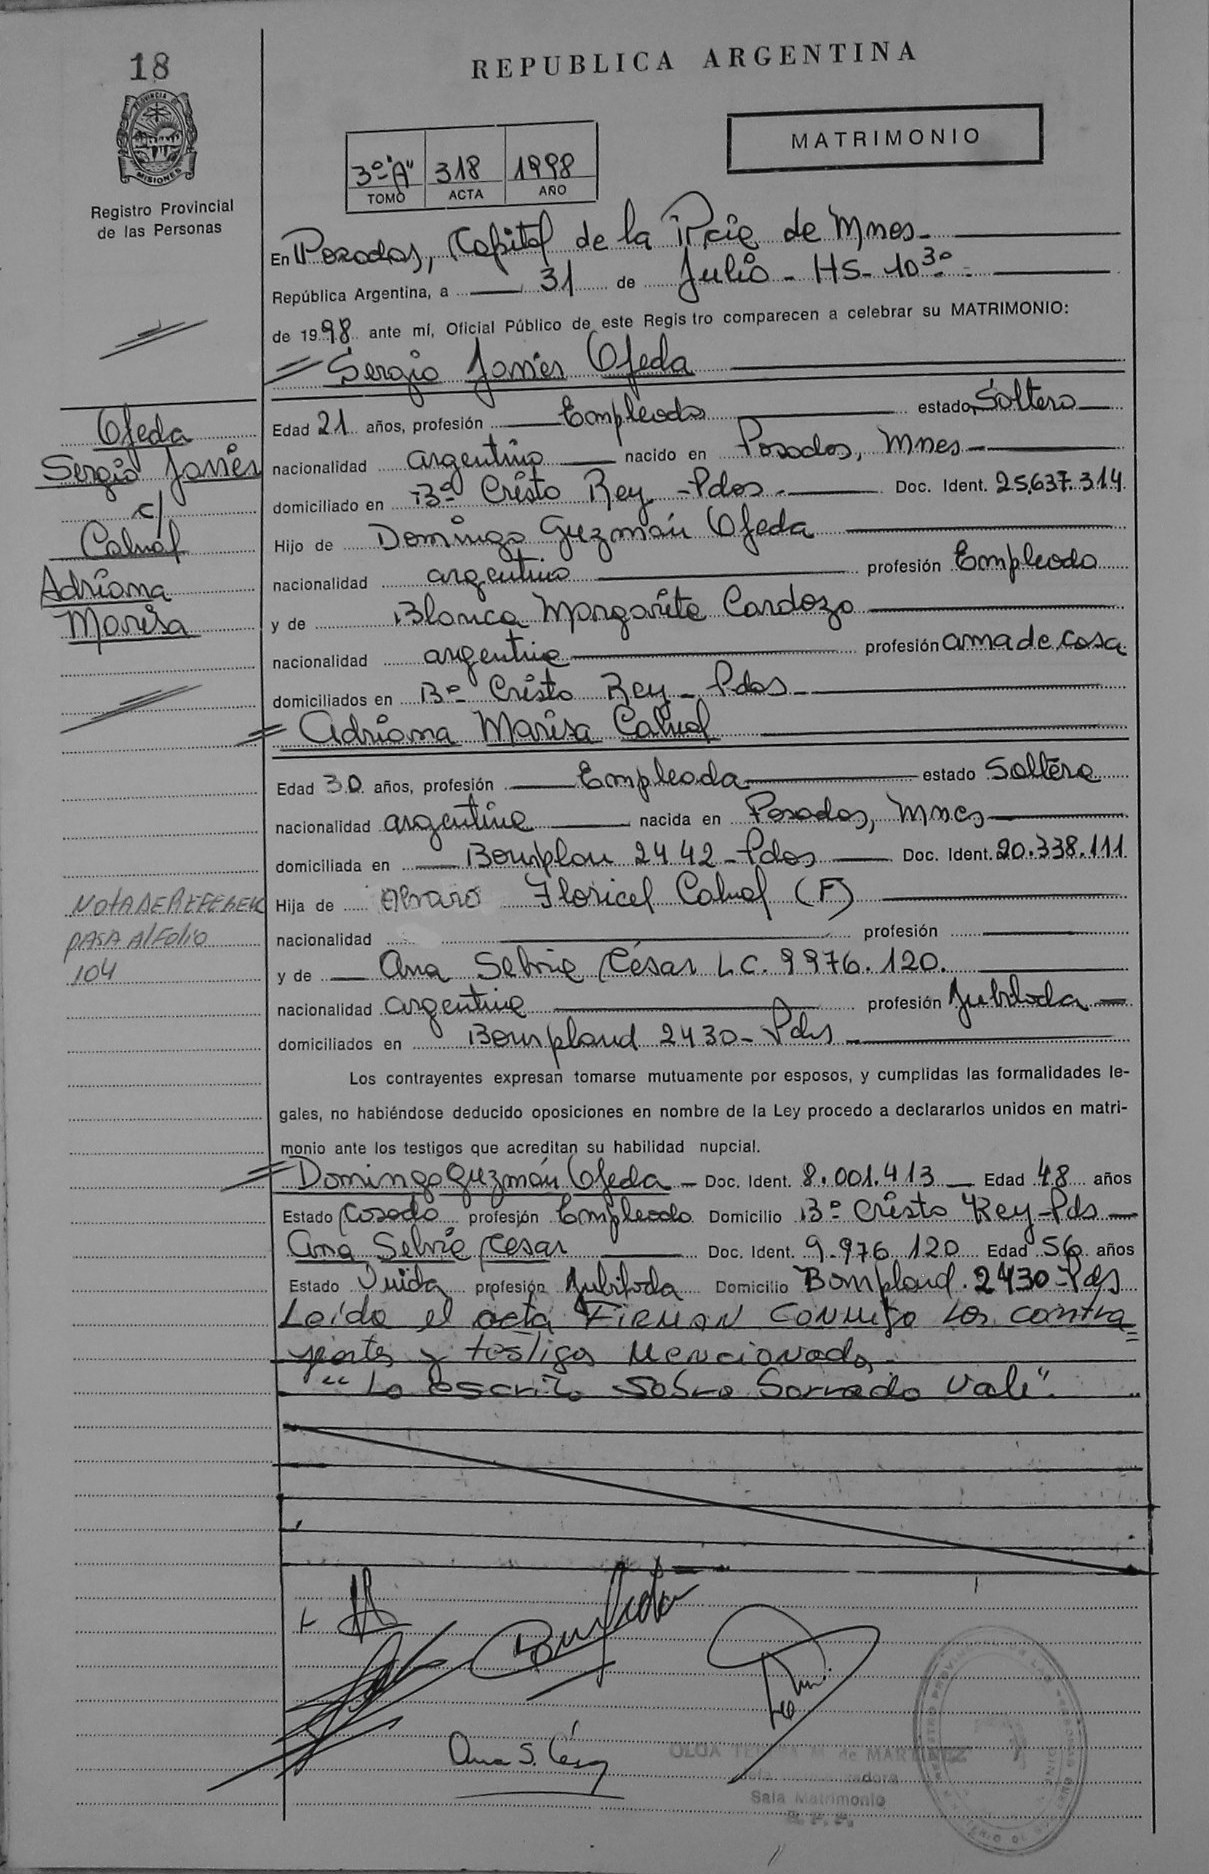 18
REPUBLICA ARGENTINA
PROVINCIA DE MISIONES
Registro Provincial
de las Personas
MATRIMONIO
3º "A" 318 1998
TOMO ACTA AÑO
En Posadas, Capital de la Pcia de Mnes
República Argentina, a 31 de Julio - HS - 10³⁰
de 1998 ante mí, Oficial Público de este Registro comparecen a celebrar su MATRIMONIO:
Sergio Javier Ojeda
Edad 21 años, profesión Empleado estado Soltero
nacionalidad argentino nacido en Posadas, Mnes
domiciliado en Bº Cristo Rey - Pdas - Doc. Ident. 25.637.314
Hijo de Domingo Guzmán Ojeda
nacionalidad argentino profesión Empleado
y de Blanca Margarita Cardozo
nacionalidad argentina profesión ama de casa
domiciliados en Bº Cristo Rey - Pdas
Adriana Marisa Cabral
Edad 30 años, profesión Empleada estado Soltera
nacionalidad argentina nacida en Posadas, Mnes
domiciliada en Bonplan 2442 - Pdas Doc. Ident. 20.338.111
Hija de Alvaro Floricel Cabral (F)
nacionalidad profesión
y de Ana Selvia César L.C. 9976.120.
nacionalidad argentina profesión Jubilada
domiciliados en Bompland 2430 - Pdas
Los contrayentes expresan tomarse mutuamente por esposos, y cumplidas las formalidades le-
gales, no habiéndose deducido oposiciones en nombre de la Ley procedo a declararlos unidos en matri-
monio ante los testigos que acreditan su habilidad nupcial.
Domingo Guzmán Ojeda - Doc. Ident. 8.001.413 Edad 48 años
Estado Casado profesión Empleado Domicilio Bº Cristo Rey - Pdas
Ana Selvia Cesar Doc. Ident. 9.976.120 Edad 56 años
Estado Viuda profesión Jubilada Domicilio Bompland 2430 - Pdas
Leída el acta FIRMAN CONMIGO LOS contra=
yentes y testigos Mencionados.
"Lo escrito sobre borrado Vale".
Ojeda
Sergio Javier
c/
Cabral
Adriana
Marisa
NOTA DE REFEREN
PASA Al FOLIO
104
Ana S. César
OLGA TERESA M. de MARTINEZ
Sala Matrimonio